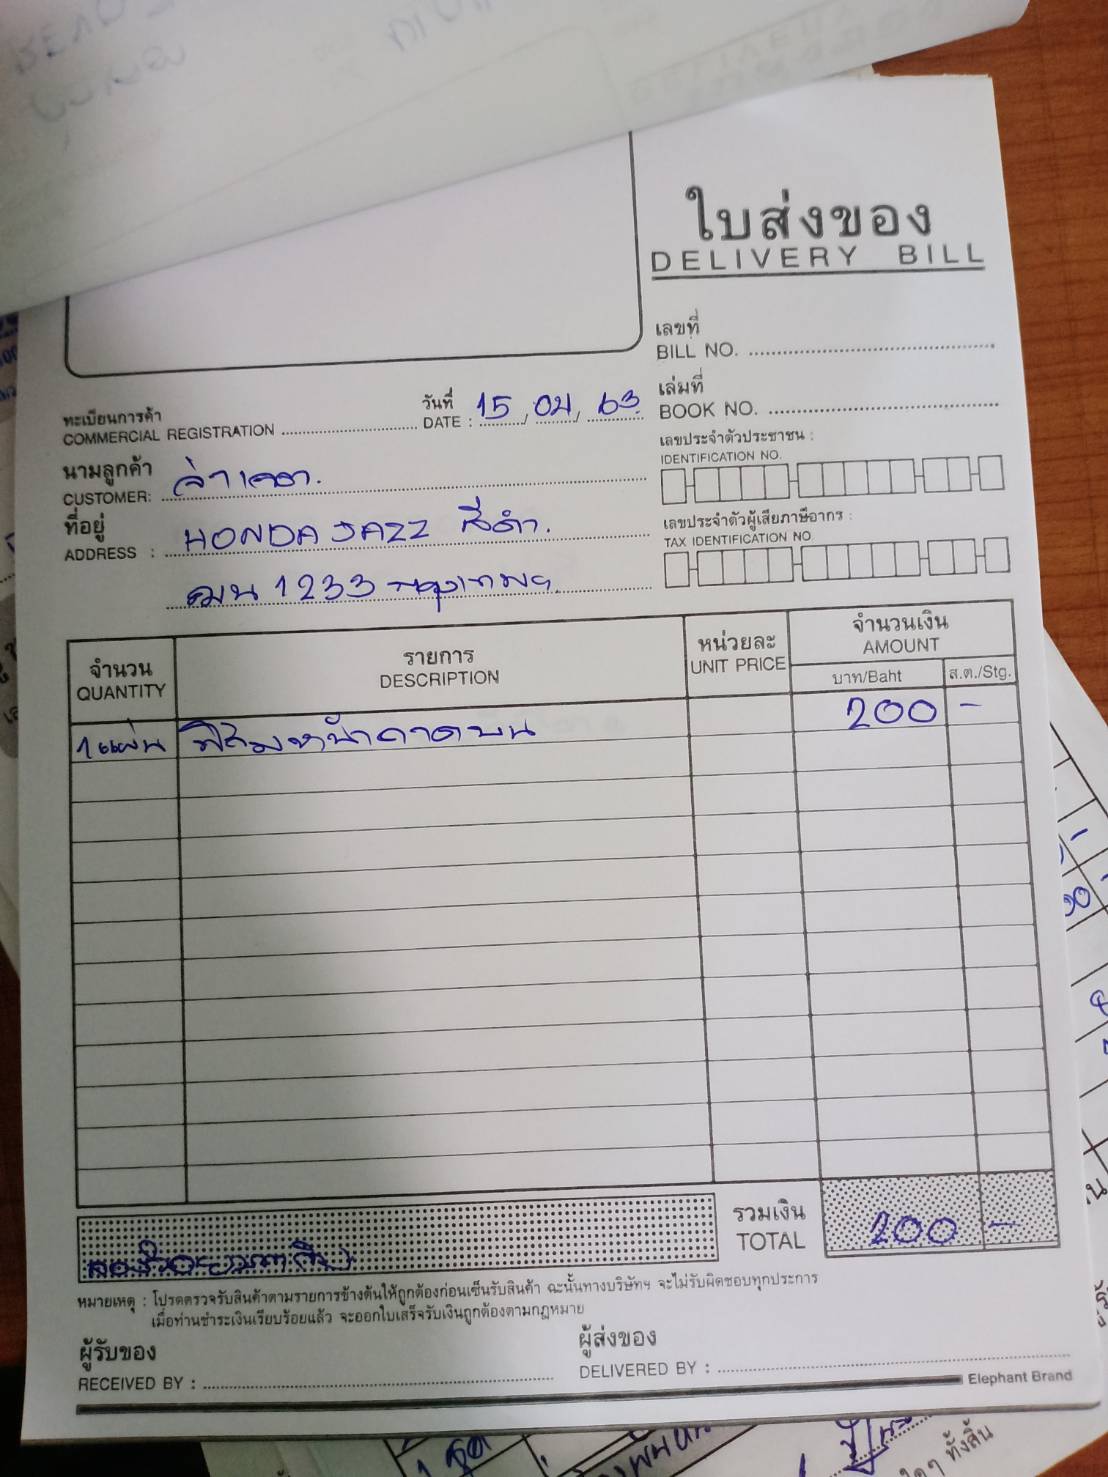 ใบส่งของ
DELIVERY BILL
เลขที่
BILL NO.
เล่มที่
BOOK NO.
ทะเบียนการค้า
COMMERCIAL REGISTRATION
วันที่
DATE : 15, 04, 63
เลขประจำตัวประชาชน :
IDENTIFICATION NO.
นามลูกค้า
CUSTOMER:
ที่อยู่
ADDRESS : HONDA JAZZ สีดำ.
เลขประจำตัวผู้เสียภาษีอากร :
TAX IDENTIFICATION NO
1233 กรุงเทพฯ
จำนวน
QUANTITY
รายการ
DESCRIPTION
หน่วยละ
UNIT PRICE
จำนวนเงิน
AMOUNT
บาท/Baht ส.ต./Stg.
1 แผ่น ฟิล์มหน้าคาดบน 200 -
รวมเงิน
TOTAL
200 -
หมายเหตุ : โปรดตรวจรับสินค้าตามรายการข้างต้นให้ถูกต้องก่อนเซ็นรับสินค้า ฉะนั้นทางบริษัทฯ จะไม่รับผิดชอบทุกประการ
เมื่อท่านชำระเงินเรียบร้อยแล้ว จะออกใบเสร็จรับเงินถูกต้องตามกฎหมาย
ผู้รับของ
RECEIVED BY :
ผู้ส่งของ
DELIVERED BY :
Elephant Brand
ทั้งสิ้น